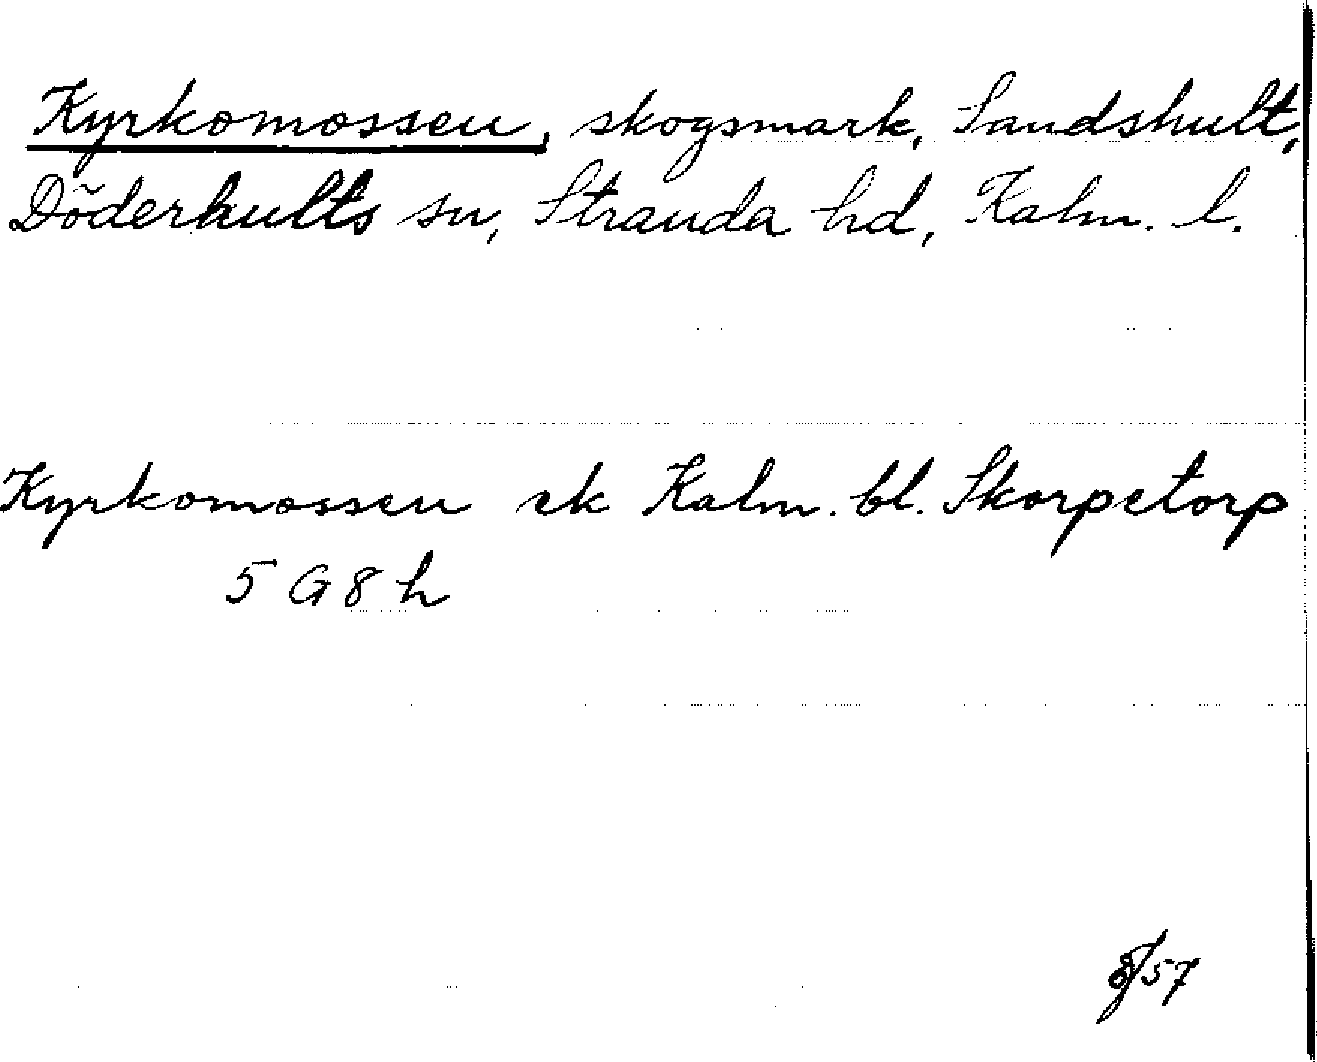 Kyrkomossen, skogsmark, Sandshult,
Döderhults sn, Stranda hd, Kalm. l.
Kyrkomossen ek Kalm. bl. Skorpetorp
5 G 8 h
8/57